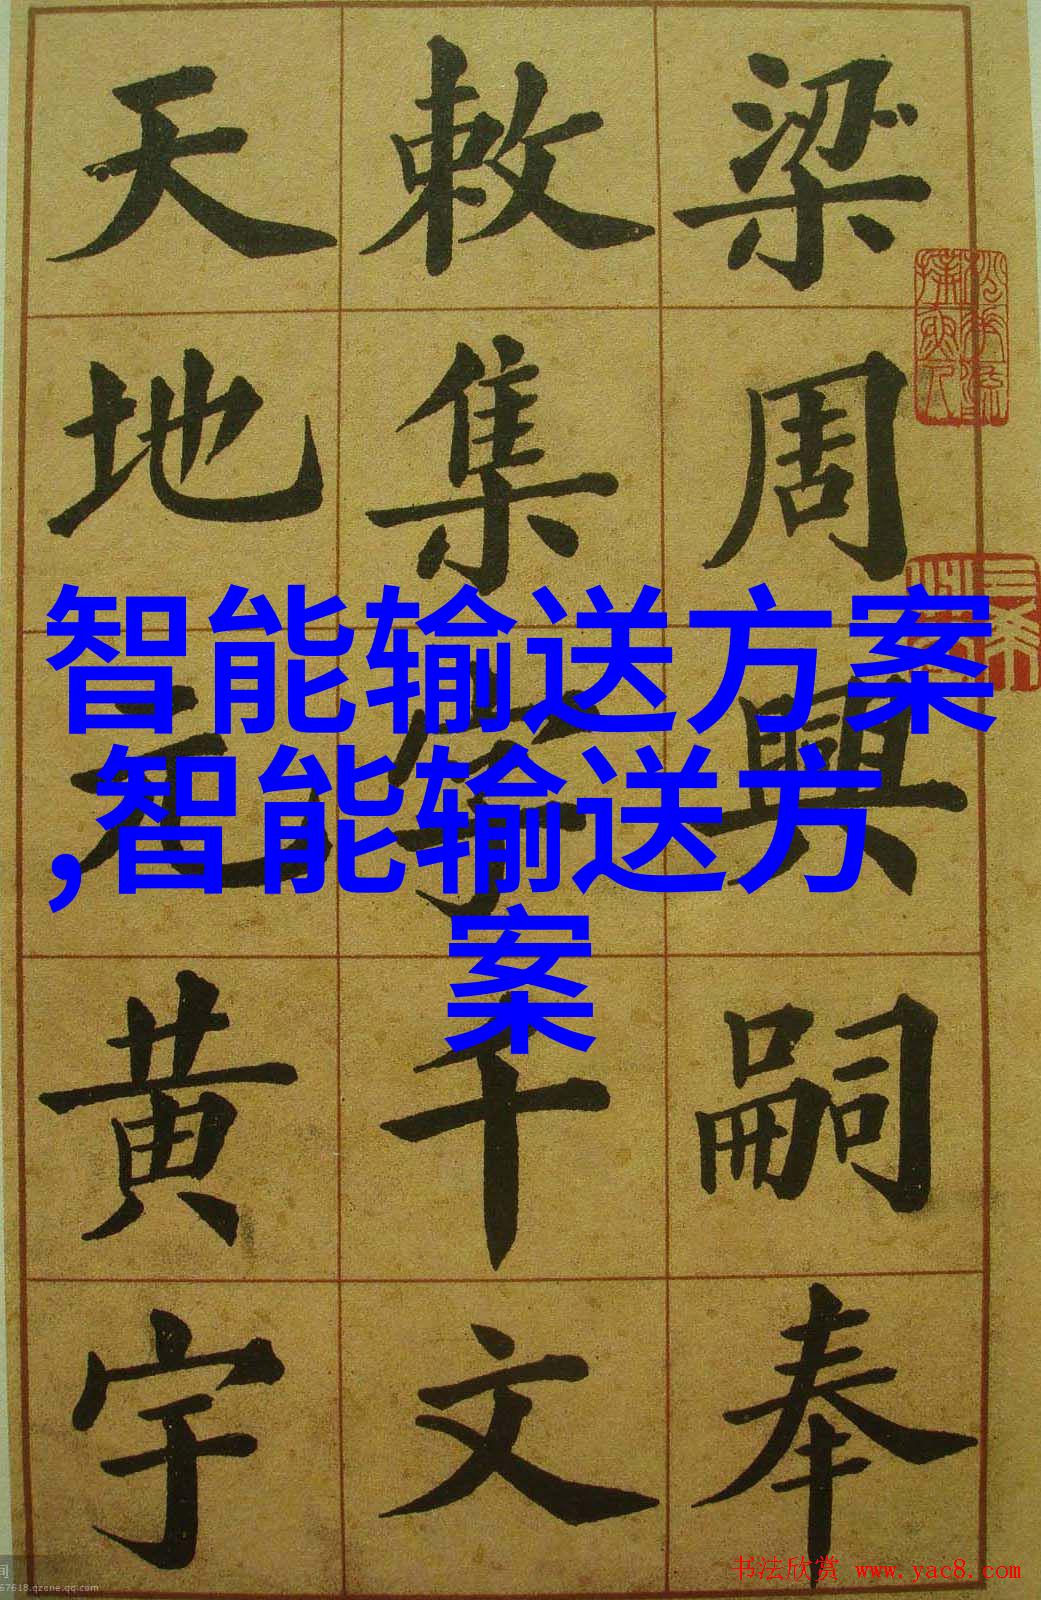 梁周興嗣奉
敕集字千文
天地元黄宇
智能输送方案
,智能输送方
案
书法欣赏 www.yac8.com
67618.qzone.qq.com